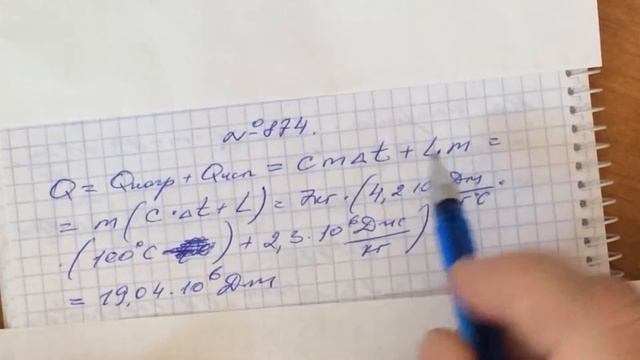 №874.
Q = Qнагр + Qисп = cmΔt + Lm =
= m(c·Δt + L) = 7кг·(4,2·10 Дж/кг°C ·
·(100°C ) + 2,3·10⁶ Дж/кг)
= 19,04·10⁶ Дж